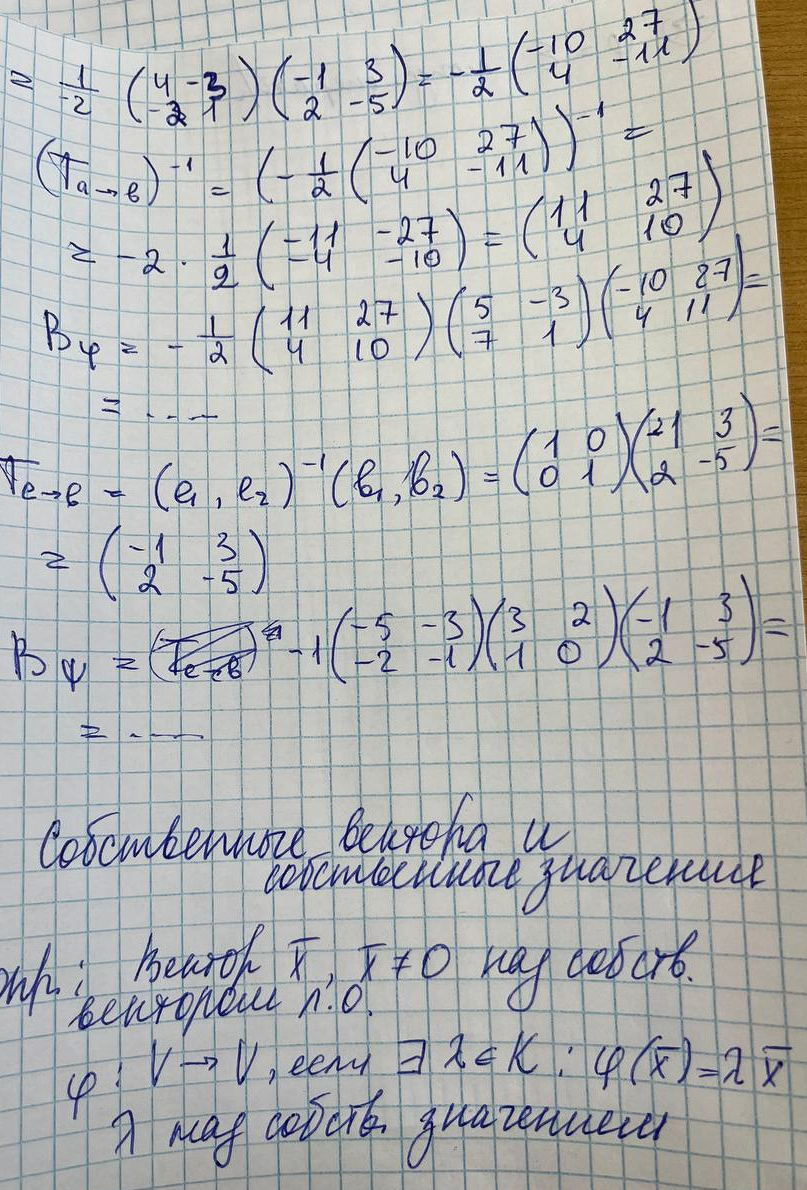 = 1/-2 (4 -3; -2 1) (-1 3; 2 -5) = -1/2 (-10 27; 4 -11)
(T a→b)^-1 = (-1/2 (-10 27; 4 -11))^-1 =
= -2 · 1/2 (-11 -27; -4 -10) = (11 27; 4 10)
B φ = -1/2 (11 27; 4 10) (5 -3; 7 1) (-10 27; 4 11) =
= ....
T e→b = (e1, e2)^-1 (b1, b2) = (1 0; 0 1) (-1 3; 2 -5) =
= (-1 3; 2 -5)
B ψ = -1 (-5 -3; -2 -1) (3 2; 1 0) (-1 3; 2 -5) =
= ....
Собственные вектора и
собственные значения
Опр: Вектор x̄, x̄ ≠ 0 наз собств.
вектором л.о.
φ: V → V, если ∃ λ ∈ K : φ(x̄) = λ x̄
λ наз собств. значением